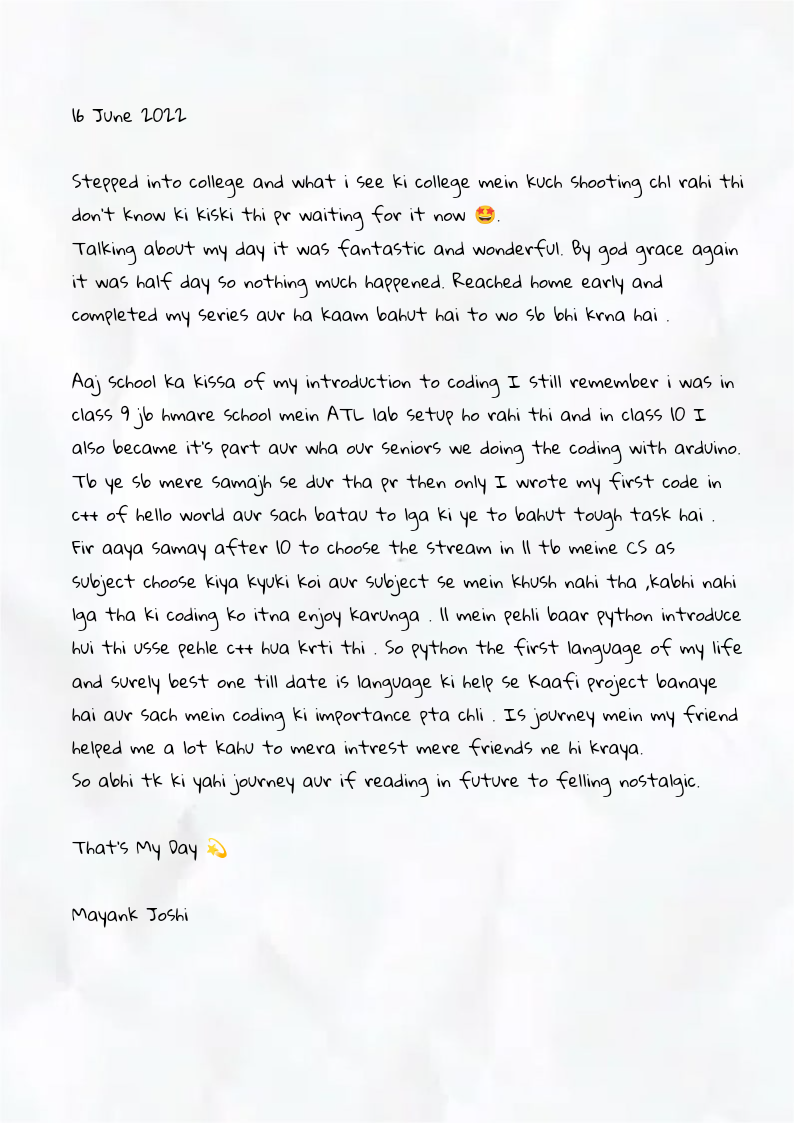 16 June 2022
Stepped into college and what i see ki college mein kuch shooting chl rahi thi
don't know ki kiski thi pr waiting for it now 🤩.
Talking about my day it was fantastic and wonderful. By god grace again
it was half day so nothing much happened. Reached home early and
completed my series aur ha kaam bahut hai to wo sb bhi krna hai .
Aaj school ka kissa of my introduction to coding I still remember i was in
class 9 jb hmare school mein ATL lab setup ho rahi thi and in class 10 I
also became it's part aur wha our seniors we doing the coding with arduino.
Tb ye sb mere samajh se dur tha pr then only I wrote my first code in
c++ of hello world aur sach batau to lga ki ye to bahut tough task hai .
Fir aaya samay after 10 to choose the stream in 11 tb meine CS as
subject choose kiya kyuki koi aur subject se mein khush nahi tha ,kabhi nahi
lga tha ki coding ko itna enjoy karunga . 11 mein pehli baar python introduce
hui thi usse pehle c++ hua krti thi . So python the first language of my life
and surely best one till date is language ki help se kaafi project banaye
hai aur sach mein coding ki importance pta chli . Is journey mein my friend
helped me a lot kahu to mera intrest mere friends ne hi kraya.
So abhi tk ki yahi journey aur if reading in future to felling nostalgic.
That's My Day 💫
Mayank Joshi